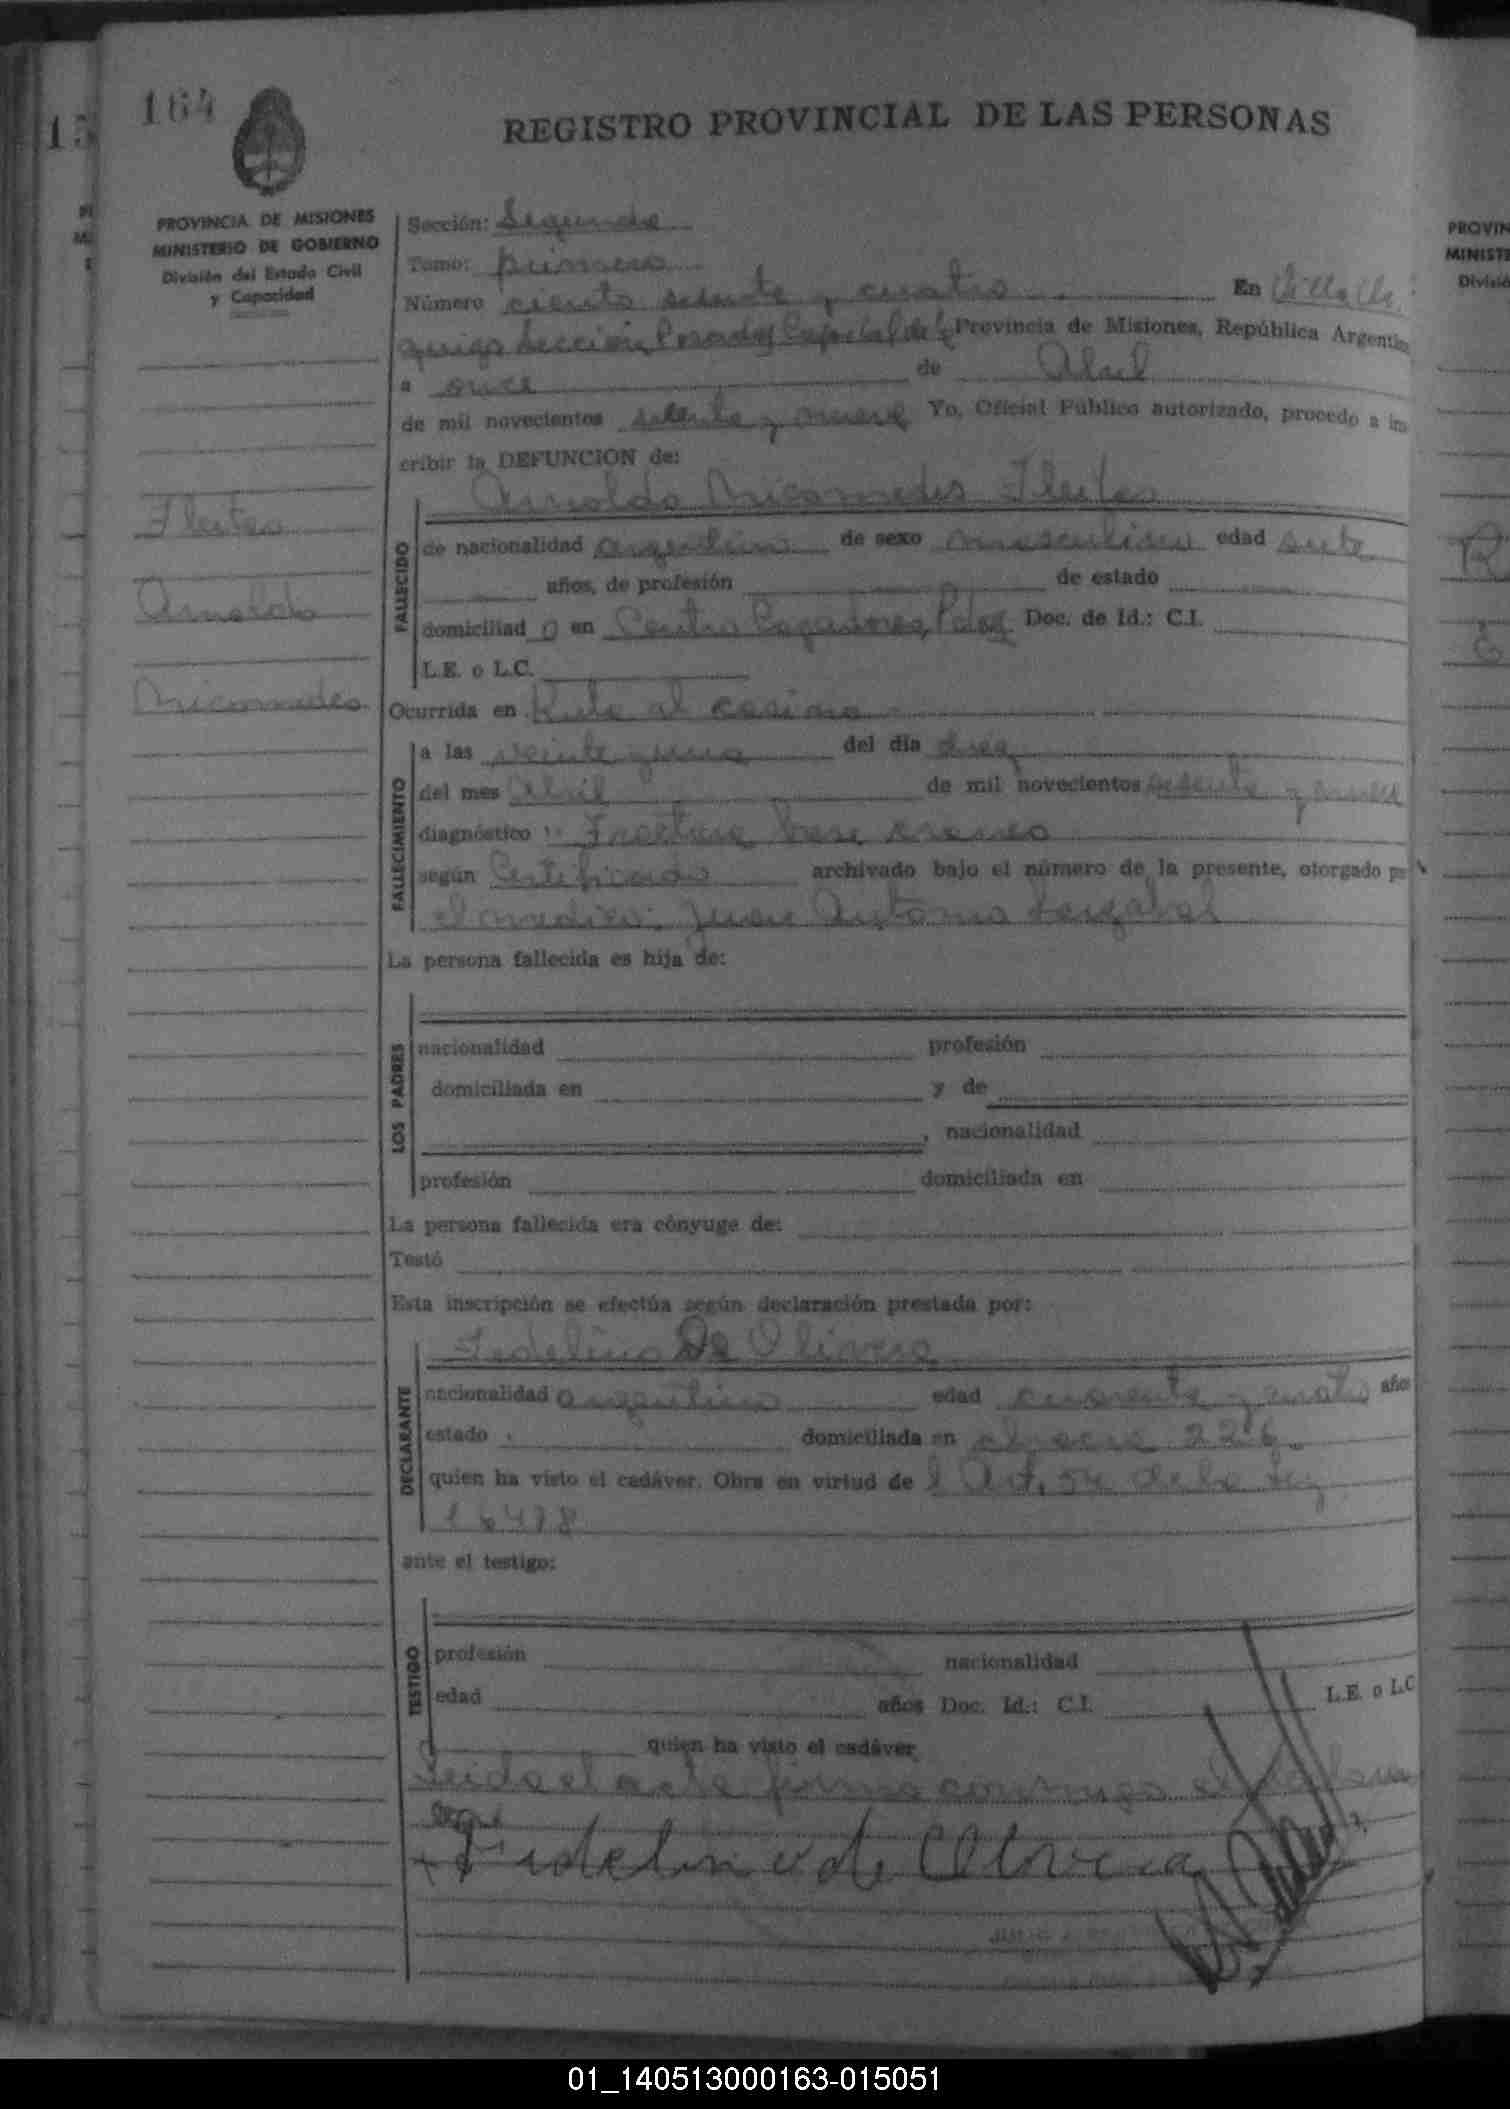 164
REGISTRO PROVINCIAL DE LAS PERSONAS
PROVINCIA DE MISIONES
MINISTERIO DE GOBIERNO
División del Estado Civil
y Capacidad
Sección: Segunda
Tomo: primero
Número ciento sesenta y cuatro En Villalle
Sección Posadas Capital de la Provincia de Misiones, República Argentina
a once de Abril
de mil novecientos sesenta y nueve Yo, Oficial Público autorizado, procedo a ins
cribir la DEFUNCION de:
Arnoldo Nicomedes Fleitas
Fleitas
Arnoldo
Nicomedes
FALLECIDO
de nacionalidad argentino de sexo masculino edad siete
años, de profesión de estado
domiciliad o en Centro Cazadores, Pdas Doc. de Id.: C.I.
L.E. o L.C.
Ocurrida en Ruta al casino
FALLECIMIENTO
a las veinte y una del día diez
del mes Abril de mil novecientos sesenta y nueve
diagnóstico Fractura base craneo
según Certificado archivado bajo el número de la presente, otorgado por
el medico: Juan Antonio
La persona fallecida es hija de:
LOS PADRES
nacionalidad profesión
domiciliada en y de
, nacionalidad
profesión domiciliada en
La persona fallecida era cónyuge de:
Testó
Esta inscripción se efectúa según declaración prestada por:
DECLARANTE
Fedelino De Olivera
nacionalidad argentino edad cuarenta y cuatro años
estado domiciliada en 226
quien ha visto el cadáver. Obra en virtud de l Art. 54 de la Ley
16478
ante el testigo:
TESTIGO
profesión nacionalidad
edad años Doc. Id.: C.I. L.E. o L.C
quien ha visto el cadáver
Leida el acta firma conmigo el
Fidelino de Olivera
01_140513000163-015051